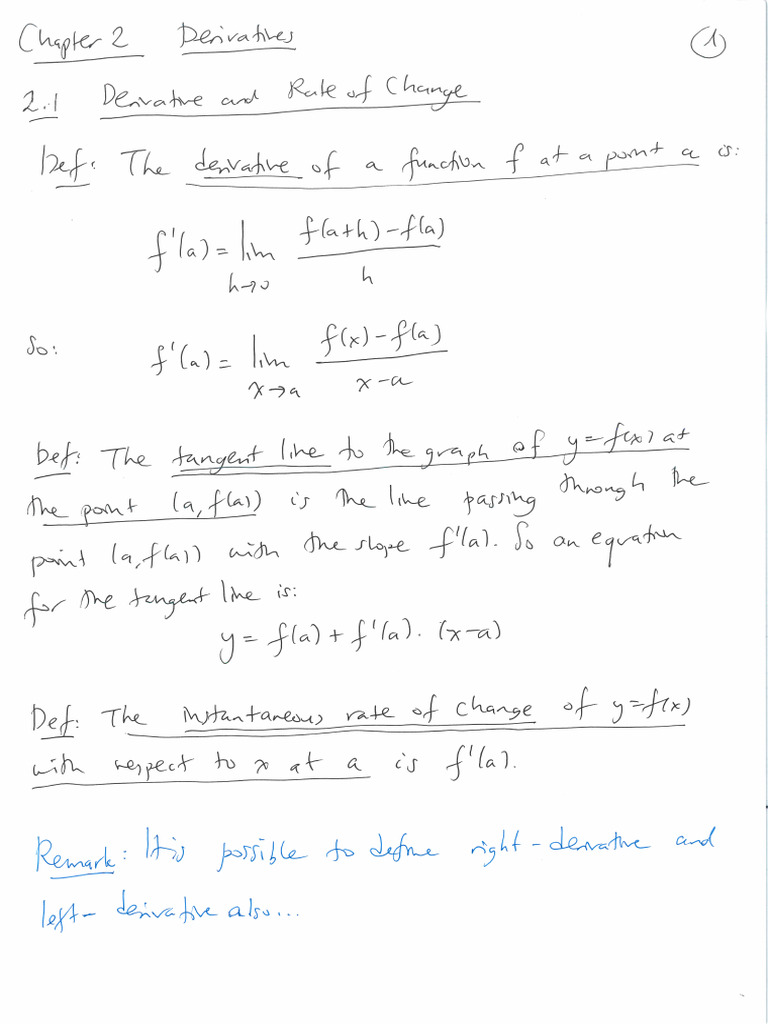 Chapter 2 Derivatives ①
2.1 Derivative and Rate of Change
Def: The derivative of a function f at a point a is:
f'(a) = lim f(a+h)-f(a)
h→0 h
So: f'(a) = lim f(x)-f(a)
x→a x-a
Def: The tangent line to the graph of y=f(x) at
the point (a,f(a)) is the line passing through the
point (a,f(a)) with the slope f'(a). So an equation
for the tangent line is:
y = f(a) + f'(a). (x-a)
Def: The instantaneous rate of change of y=f(x)
with respect to x at a is f'(a).
Remark: It is possible to define right-derivative and
left-derivative also...